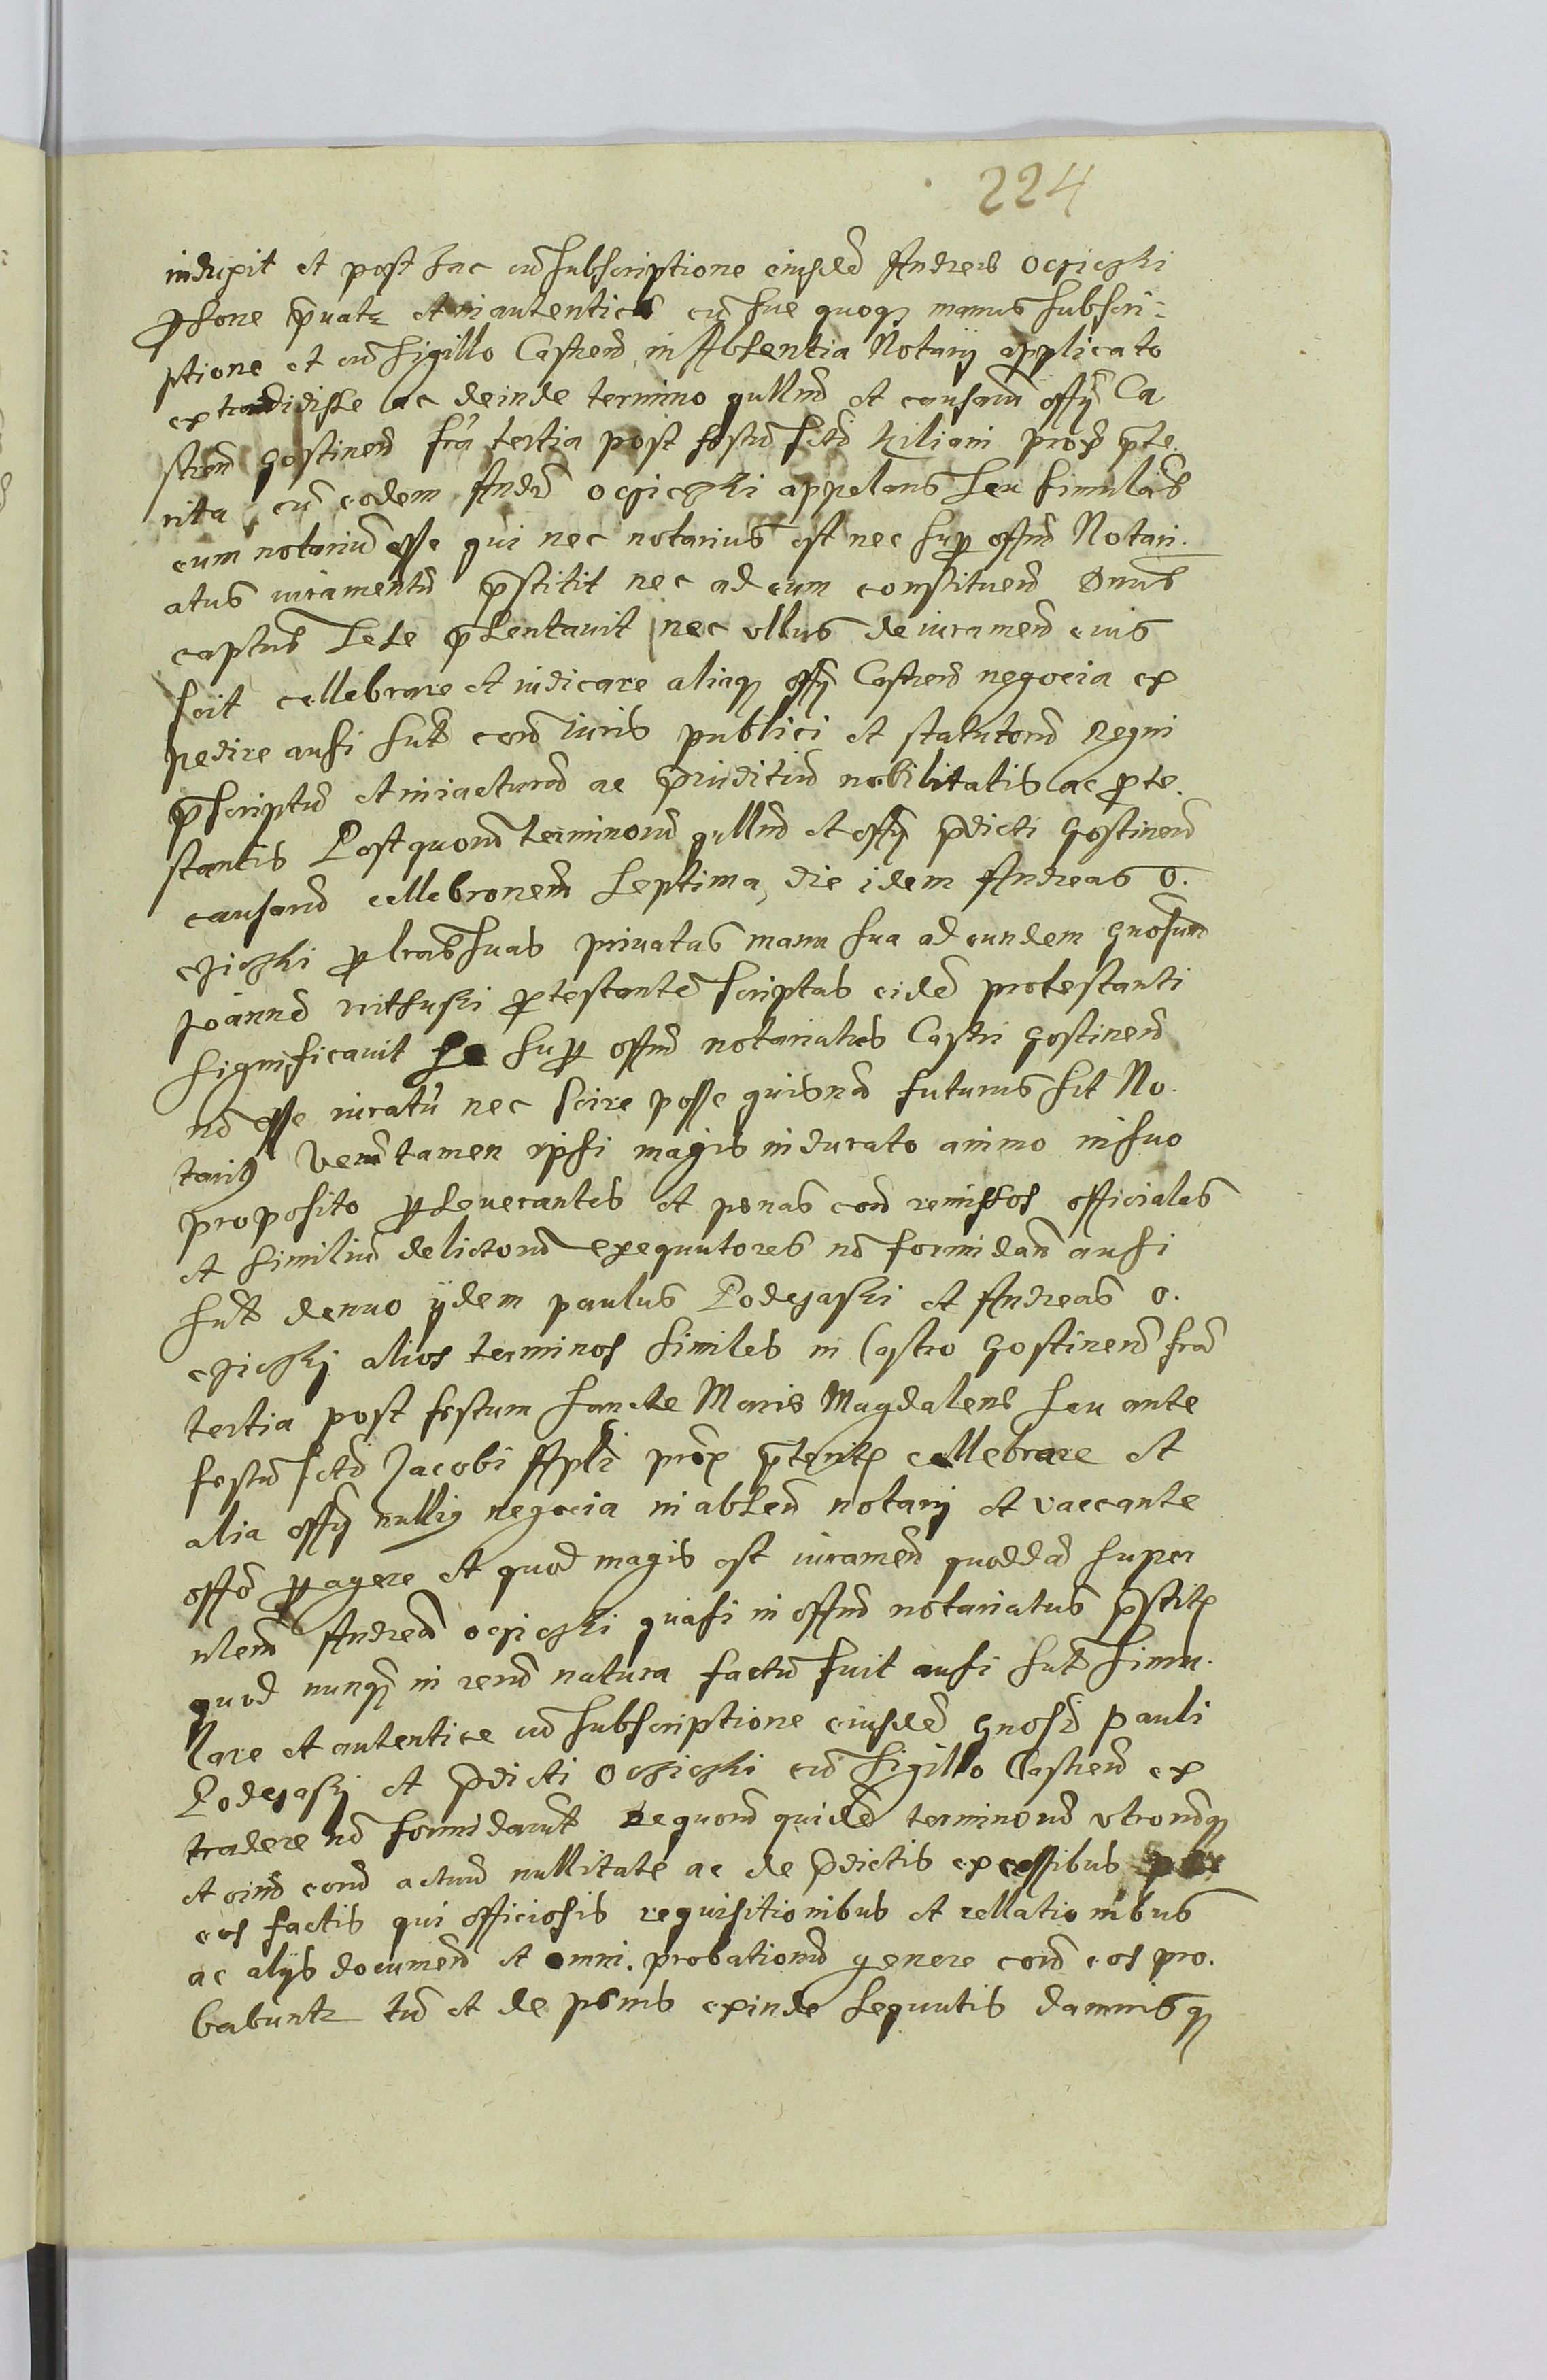 224
induxit et post hac cũ subscriptione eiusdẽ Andreæ ocſieſki
ꝑsone p̃uatæ et in autentica cũ sue quoqꝫ manus subscri-
ptione et cũ sigillo Castreñ in Absentia Notarij applicato
extradidisse ac deinde termino qullnũ et causarũ offij Ca
streñ gostineñ fr̃a tertia post festũ sctĩ kiliani proxĩ p̃te
rita cũ eodem Andr̃ ocſieſki appelans seu simulãs
eum notariũ esse qui nec notarius est nec suꝑ offm̃ Notari
atus iuramentũ p̃stitit nec ad eum constitueñ
captus sese p̃sentauit nec vllus de iurameñ eius
scit cellebrare et iudicare aliaqꝫ offij Castreñ negocia ex
pedire ausi sũt cõtr̃ iuris publici et statutorũ Regni
p̃scriptũ et in iacturã ac p̃iuditiũ nobilitatis ac ꝓte
stantis Postquorũ terminorũ qullnũ et offij p̃dicti gostineñ
causarũ cellebronem̃ septima die idem Andreas O
cſieſki ꝑ lras̃ suas priuatas manu sua ad eundem gnosum̃
Joannẽ ꝓtestantẽ scriptas eidẽ protestanti
significauit se suꝑ offm̃ notariatus Castri gostineñ
nõ esse iuratũ nec scire posse quisnã futurus sit No
tariꝰ Verũtamen ipsi magis indurato animo in suo
proposito ꝑseuerantes et penas cõtr̃ remissos officiales
et similiũ delictorũ exequutores nõ formidañ ausi
sũt denuo ijdem paulus Podczaski et Andreas o
cſieſkij alios terminos similes in Castro gostineñ fr̃ã
tertia post festum sancte Marie Magdalene seu ante
festũ sctĩ Jacobi Apl̃i prox̃ p̃terit̃ cellebrare et
alia offij nulliꝰ negocia in abseñ notarij et vaccante
offõ ꝑagere et quod magis est iurameñ quoddã super
Andreã ocſieſki quasi in offm̃ notariatus p̃stit̃
quod nunqꝫ in rerũ natura factũ fuit ausi sũt simu
lare et autentice cũ subscriptione eiusdẽ gnosĩ pauli
Podczaskij et p̃dicti Ocſieſki cũ sigillo Castreñ ex
tradere nõ formidarũt De quorũ quidẽ terminorũ vtrorũqꝫ
et oiũm cõtr̃ actorũ nullitatẽ ac de p̃dictis excessibus per
eos factis qui officiosis requisitionibus et rellationibus
ac alijs documeñ et omni probationũ genere cõtr̃ eos pro
babuntꝛ tũ et de penis exinde sequutis damnisqꝫ